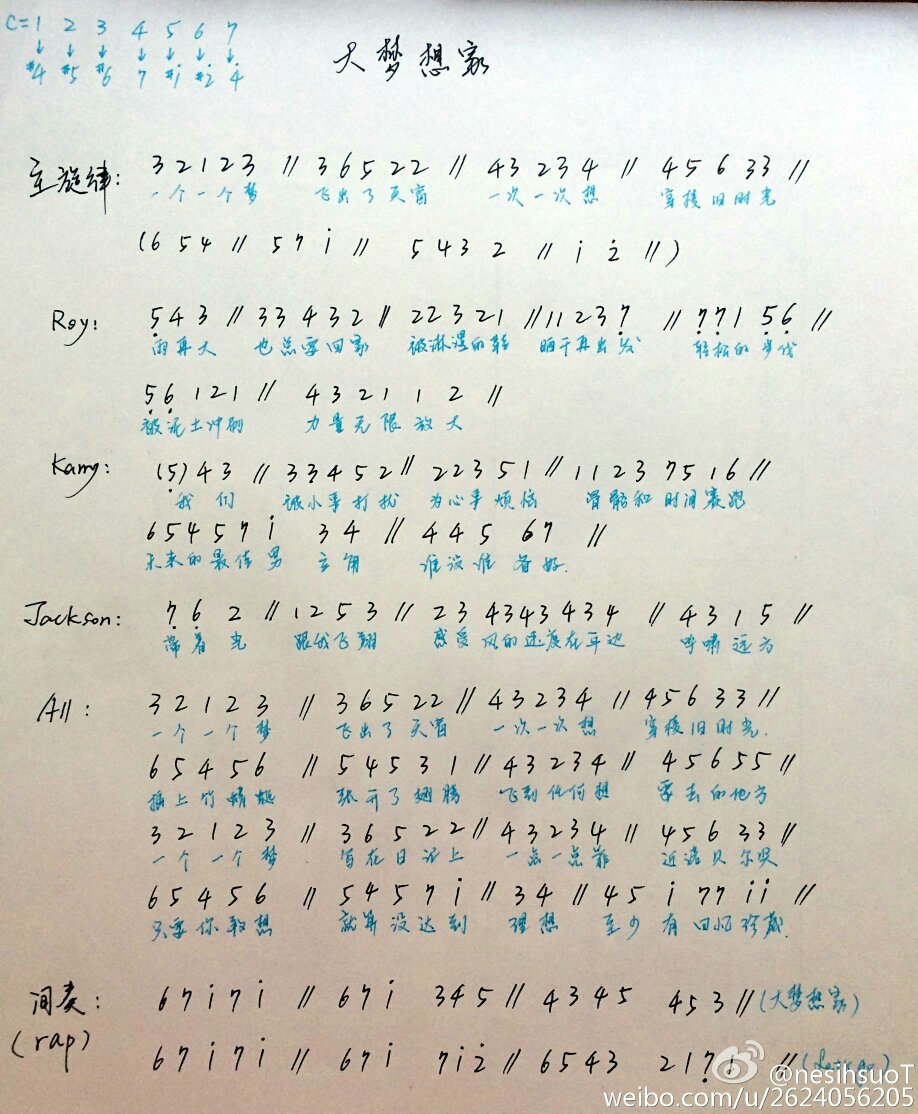 C=1 2 3 4 5 6 7
↓ ↓ ↓ ↓ ↓ ↓ ↓
#4 #5 #6 7 #i #2̇ 4̇
大梦想家
主旋律: 3 2 1 2 3 // 3 6 5 2 2 // 4 3 2 3 4 // 4 5 6 3 3 //
一个一个梦 飞出了天窗 一次一次想 穿梭旧时光
(6 5 4 // 5 7 i // 5 4 3 2 // i 2̇ //)
Roy: 5̣ 4 3 // 3 3 4 3 2 // 2 2 3 2 1 // 1 1 2 3 7̣ // 7̣ 7̣ 1 5̣ 6̣ //
雨再大 也总要回家 被淋湿的鞋 晒干再出发 轻松的步伐
5̣ 6̣ 1 2 1 // 4 3 2 1 1 2 //
被泥土冲刷 力量无限放大
Karry: (5̣) 4 3 // 3 3 4 5 2 // 2 2 3 5 1 // 1 1 2 3 7 5 1 6 //
我们 被小事打扰 为心事烦恼 骨骼和时间赛跑
6 5 4 5 7 i 3 4 // 4 4 5 6 7 //
未来的最佳男主角 谁没谁看好.
Jackson: 7̣ 6̣ 2 // 1 2 5 3 // 2 3 4 3 4 3 4 3 4 // 4 3 1 5 //
带着光 跟我飞翔 感受风的速度在耳边 呼啸远方
All: 3 2 1 2 3 // 3 6 5 2 2 // 4 3 2 3 4 // 4 5 6 3 3 //
一个一个梦 飞出了天窗 一次一次想 穿梭旧时光.
6 5 4 5 6 // 5 4 5 3 1 // 4 3 2 3 4 // 4 5 6 5 5 //
插上竹蜻蜓 张开了翅膀 飞到任何想 要去的地方
3 2 1 2 3 // 3 6 5 2 2 // 4 3 2 3 4 // 4 5 6 3 3 //
一个一个梦 写在日记上 一点一点靠 近诺贝尔奖
6 5 4 5 6 // 5 4 5 7 i // 3 4 // 4 5 i 7 7 i i //
只要你敢想 就算没达到 理想 至少有回忆珍藏.
间奏: 6 7 i 7 i // 6 7 i 3 4 5 // 4 3 4 5 4 5 3 // (大梦想家)
(rap) 6 7 i 7 i // 6 7 i 7 i 2̇ // 6 5 4 3 2 1 7̣ 1 //
@nesihsuoT
weibo.com/u/2624056205